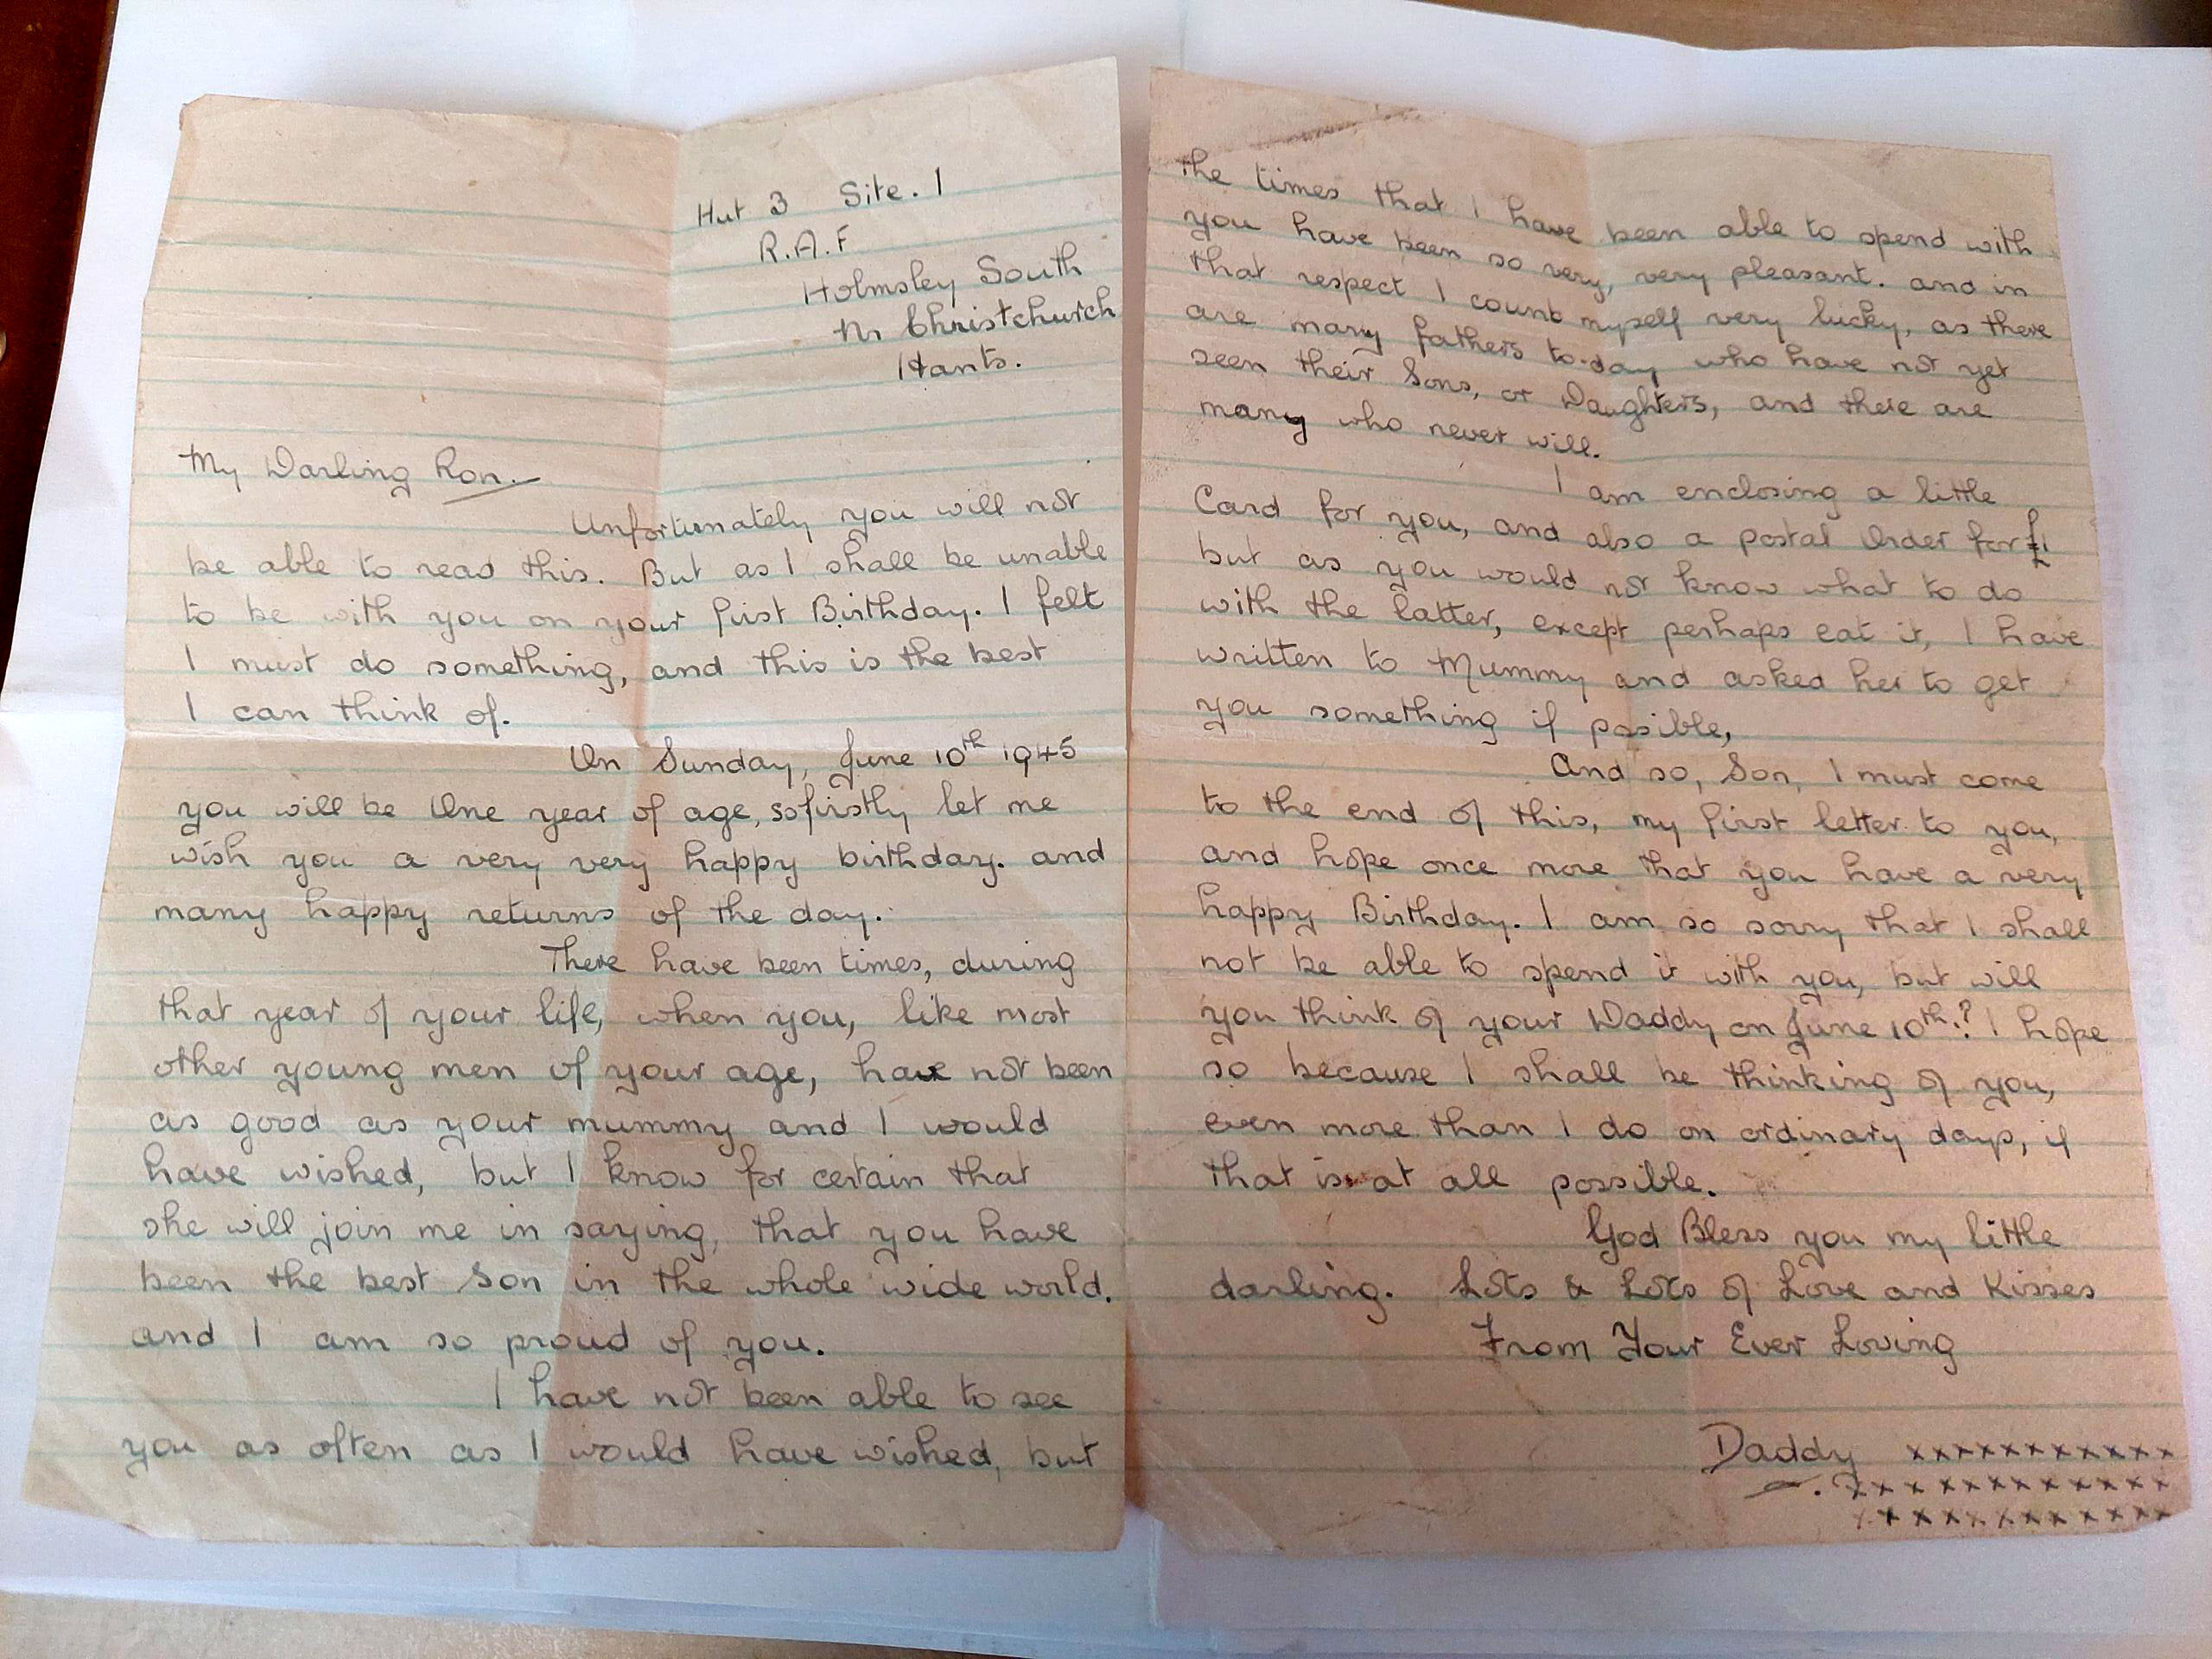 Hut 3 Site. 1
R.A.F
Holmsley South
Nr Christchurch
Hants.
My Darling Ron.
Unfortunately you will not
be able to read this. But as I shall be unable
to be with you on your first Birthday. I felt
I must do something, and this is the best
I can think of.
On Sunday, June 10th 1945
you will be One year of age, so firstly let me
wish you a very very happy birthday. and
many happy returns of the day.
There have been times, during
that year of your life, when you, like most
other young men of your age, have not been
as good as your mummy and I would
have wished, but I know for certain that
she will join me in saying, that you have
been the best Son in the whole wide world.
and I am so proud of you.
I have not been able to see
you as often as I would have wished, but
the times that I have been able to spend with
you have been so very, very pleasant. and in
that respect I count myself very lucky, as there
are many fathers to-day who have not yet
seen their Sons, or Daughters, and there are
many who never will.
I am enclosing a little
Card for you, and also a postal Order for £1
but as you would not know what to do
with the latter, except perhaps eat it, I have
written to Mummy and asked her to get
you something if posible,
And so, Son, I must come
to the end of this, my first letter to you,
and hope once more that you have a very
happy Birthday. I am so sorry that I shall
not be able to spend it with you, but will
you think of your Daddy on June 10th.? I hope
so because I shall be thinking of you,
even more than I do on ordinary days, if
that is at all possible.
God Bless you my little
darling. Lots & Lots of Love and Kisses
From Your Ever Loving
Daddy xxxxxxxxxxx
xxxxxxxxxxxx
xxxxxxxxxxx